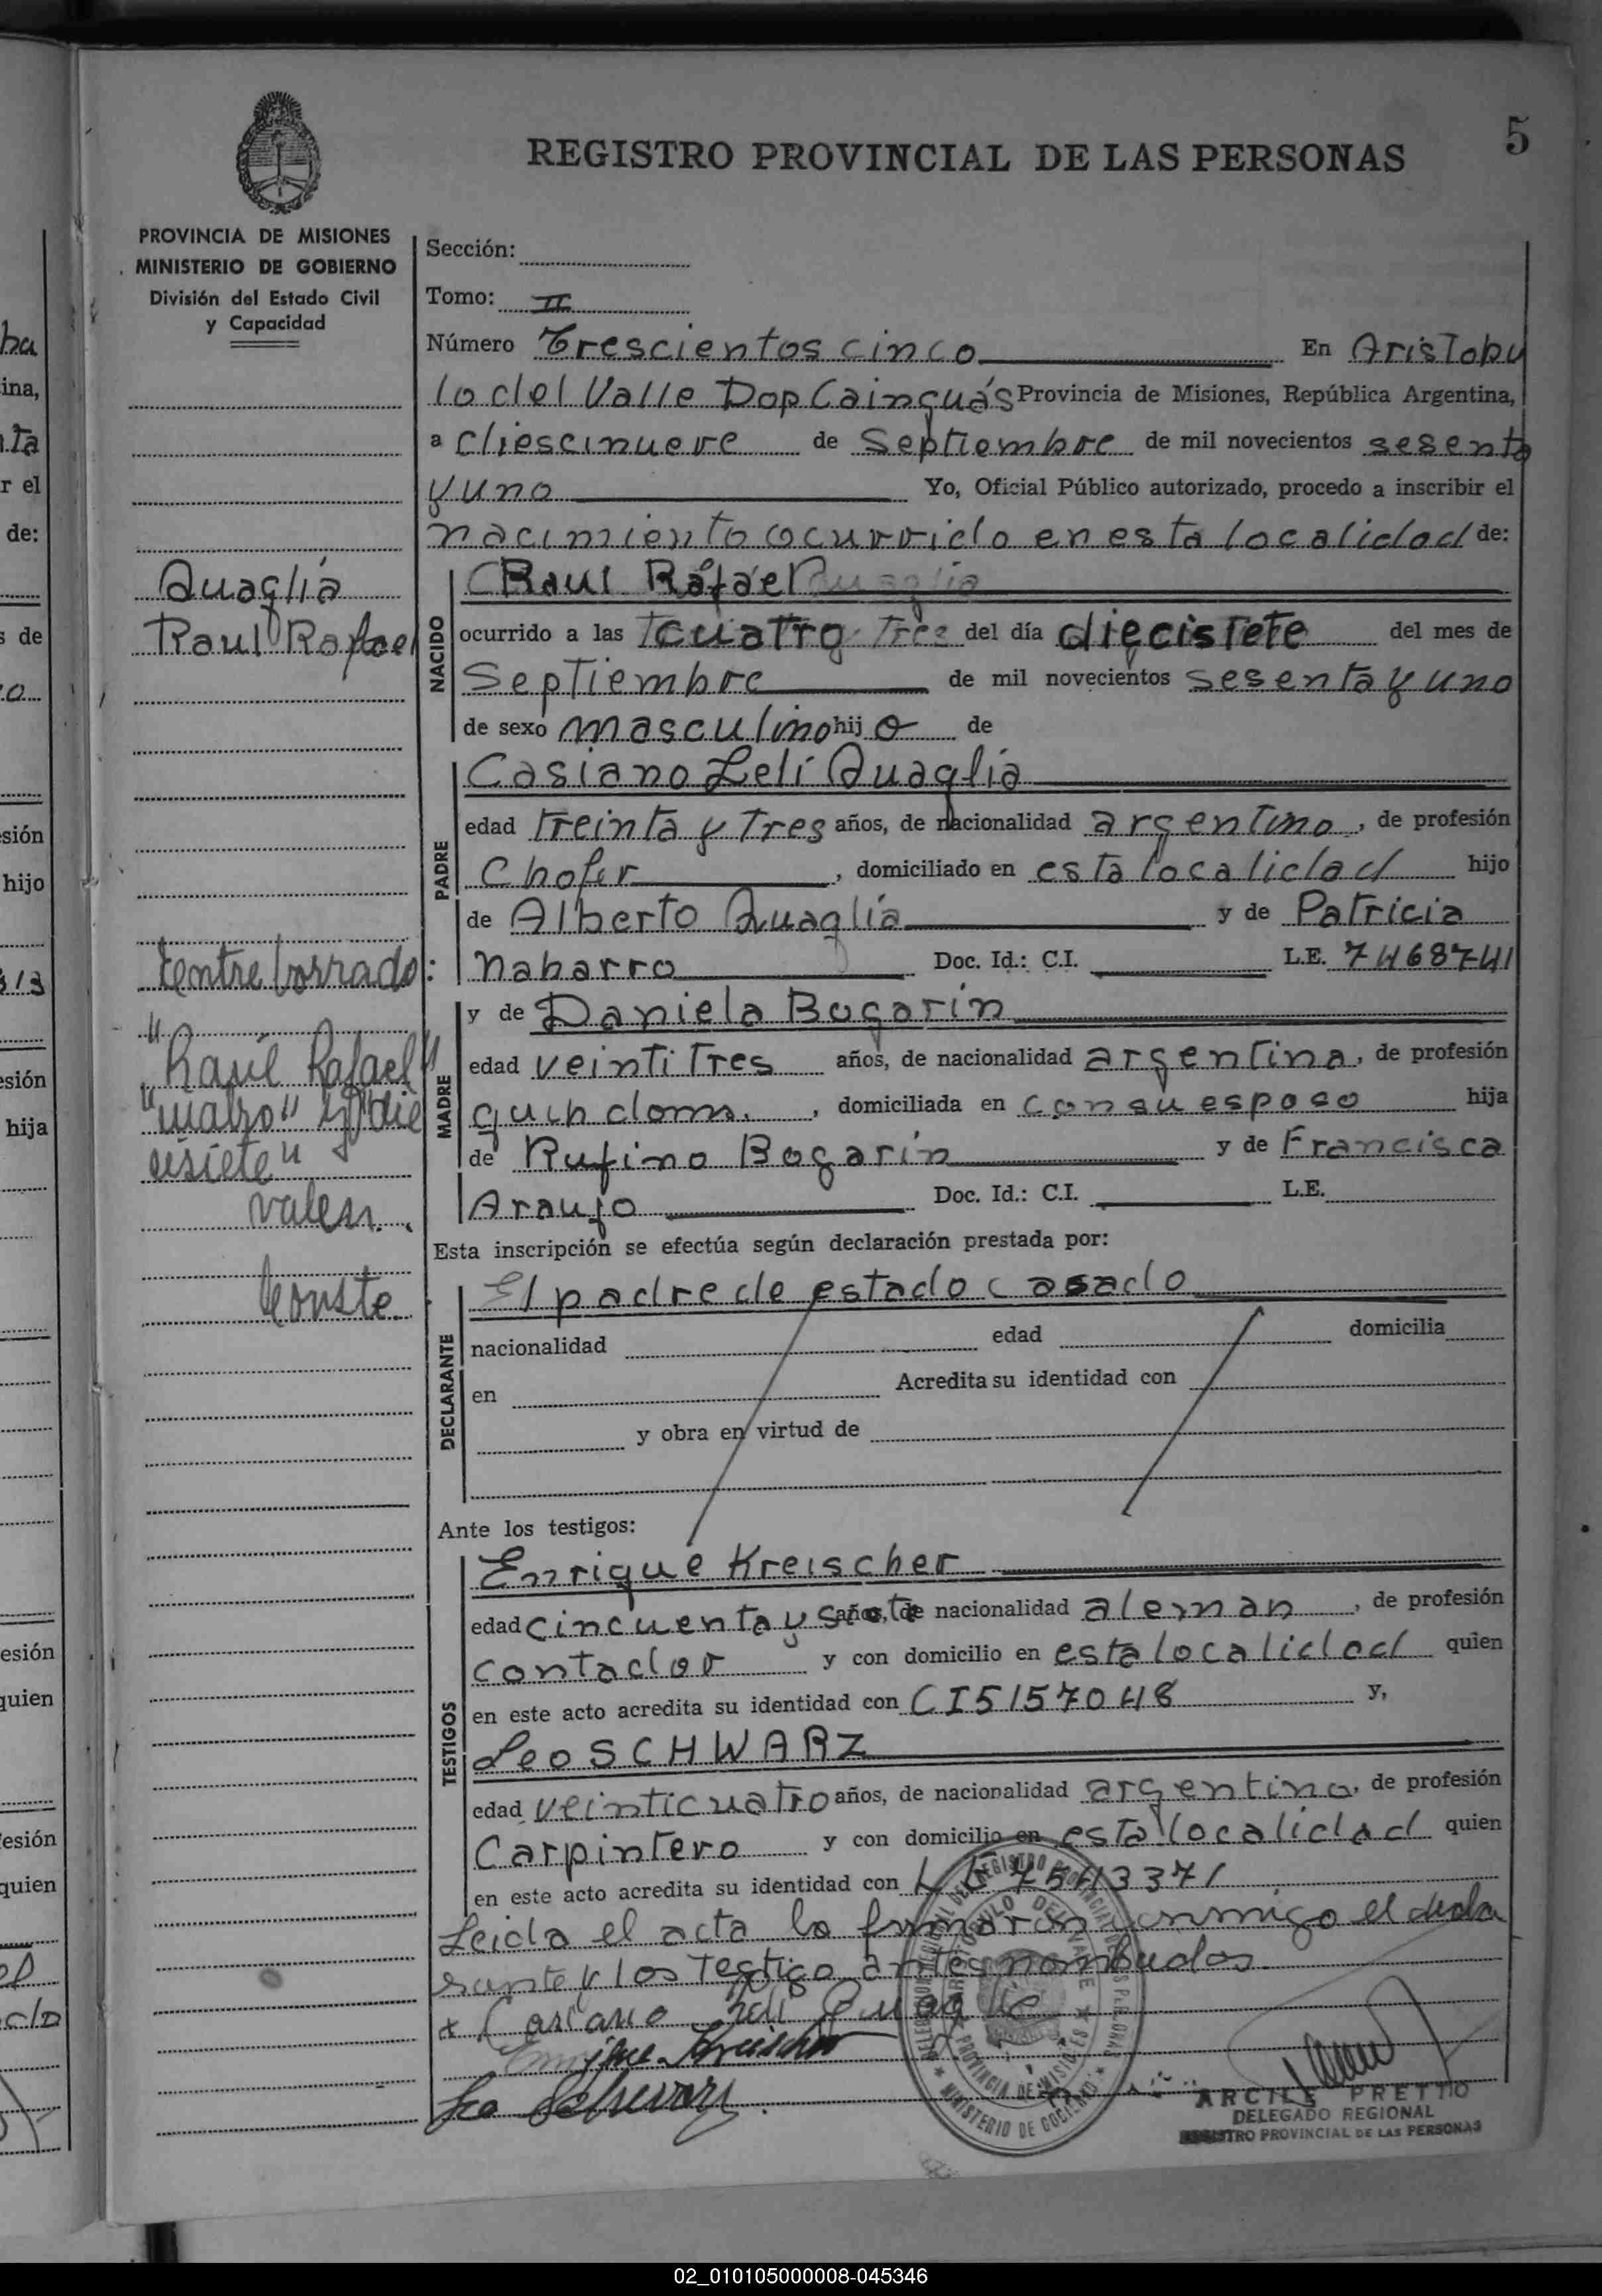 5
REGISTRO PROVINCIAL DE LAS PERSONAS
PROVINCIA DE MISIONES
MINISTERIO DE GOBIERNO
División del Estado Civil
y Capacidad
Quaglia
Raul Rafael
Sección:
Tomo: II
Número Trescientos cinco En Aristobu
lo del Valle Dop Cainguás Provincia de Misiones, República Argentina,
a diescinueve de Septiembre de mil novecientos sesenta
y uno Yo, Oficial Público autorizado, procedo a inscribir el
nacimiento ocurrido en esta localidad de:
NACIDO
Raul Rafael
ocurrido a las cuatro Tres del día diecisiete del mes de
Septiembre de mil novecientos sesenta y uno
de sexo masculino hij o de
PADRE
Casiano Leli Quaglia
edad treinta y Tres años, de nacionalidad argentino, de profesión
Chofer, domiciliado en esta localidad hijo
de Alberto Quaglia y de Patricia
Nabarro Doc. Id.: C.I. L.E. 7468741
entre borrado:
"Raúl Rafael"
"cuatro" y "die
cisiete"
valen.
Conste.
MADRE
y de Daniela Bogarin
edad veintiTres años, de nacionalidad argentina, de profesión
queh doms., domiciliada en con su esposo hija
de Rufino Bogarin y de Francisca
Araujo Doc. Id.: C.I. L.E.
Esta inscripción se efectúa según declaración prestada por:
DECLARANTE
El padre de estado casado
nacionalidad edad domicilia
en Acredita su identidad con
y obra en virtud de
Ante los testigos:
TESTIGOS
Enrique Kreischer
edad cincuenta y siete años, de nacionalidad aleman, de profesión
contador y con domicilio en esta localidad quien
en este acto acredita su identidad con CI5157048 y,
Leo SCHWARZ
edad veinticuatro años, de nacionalidad argentino, de profesión
Carpintero y con domicilio en esta localidad quien
en este acto acredita su identidad con LE 7543371
Leida el acta la firmaron conmigo el decla
rante y los testigo antes nombrados.
x Casiano Leli Quaglia
Enrique Kreischer
Leo Schwarz
ARCILE PRETTO
DELEGADO REGIONAL
REGISTRO PROVINCIAL DE LAS PERSONAS
02_010105000008-045346